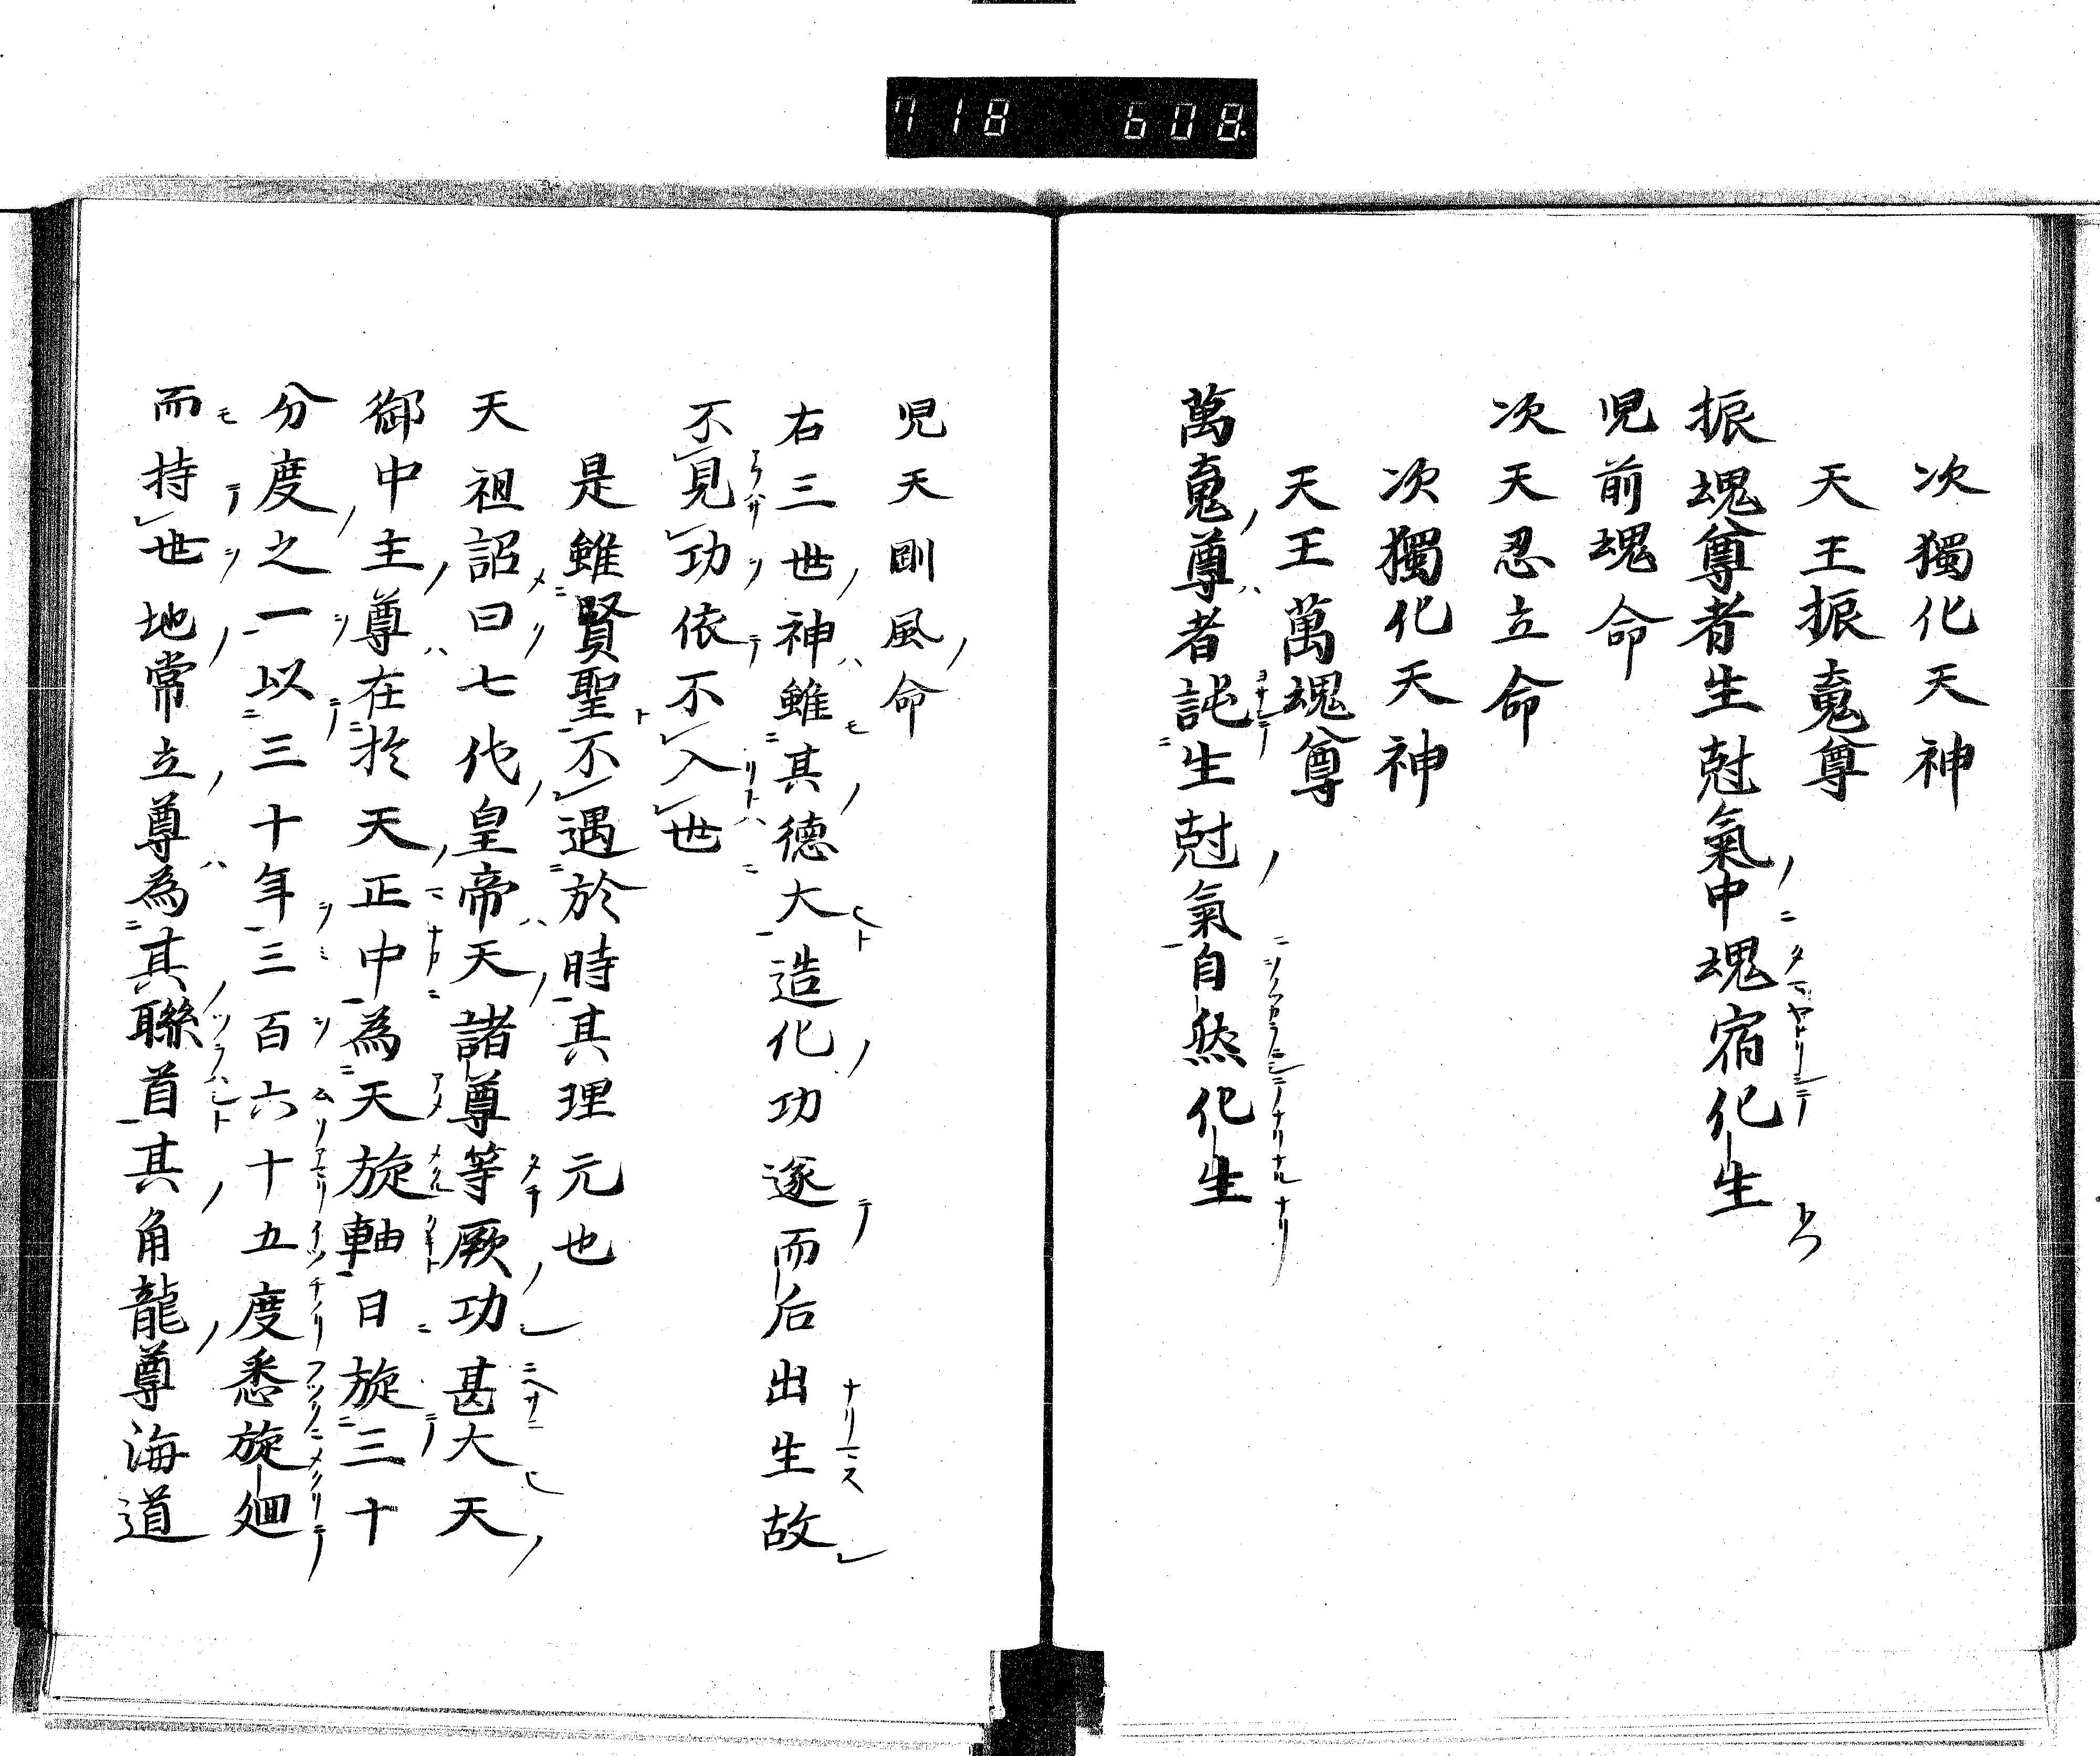 718 608
次獨化天神
天王振䰟尊
振塊尊者生尅氣中塊宿化生
児前塊命
次天忍立命
次獨化天神
天王萬塊尊
萬䰟尊者託生尅氣自然化生
児天剛風命
右三世神雖其德大造化功遂而后出生故
不見功依不入世
是雖賢聖不遇於時其理元也
天祖詔曰七代皇帝天諸尊等厥功甚大天
御中主尊在於天正中為天旋軸日旋三十
分度之一以三十年三百六十五度悉旋廻
而持世地常立尊為其聯首其角龍尊海道